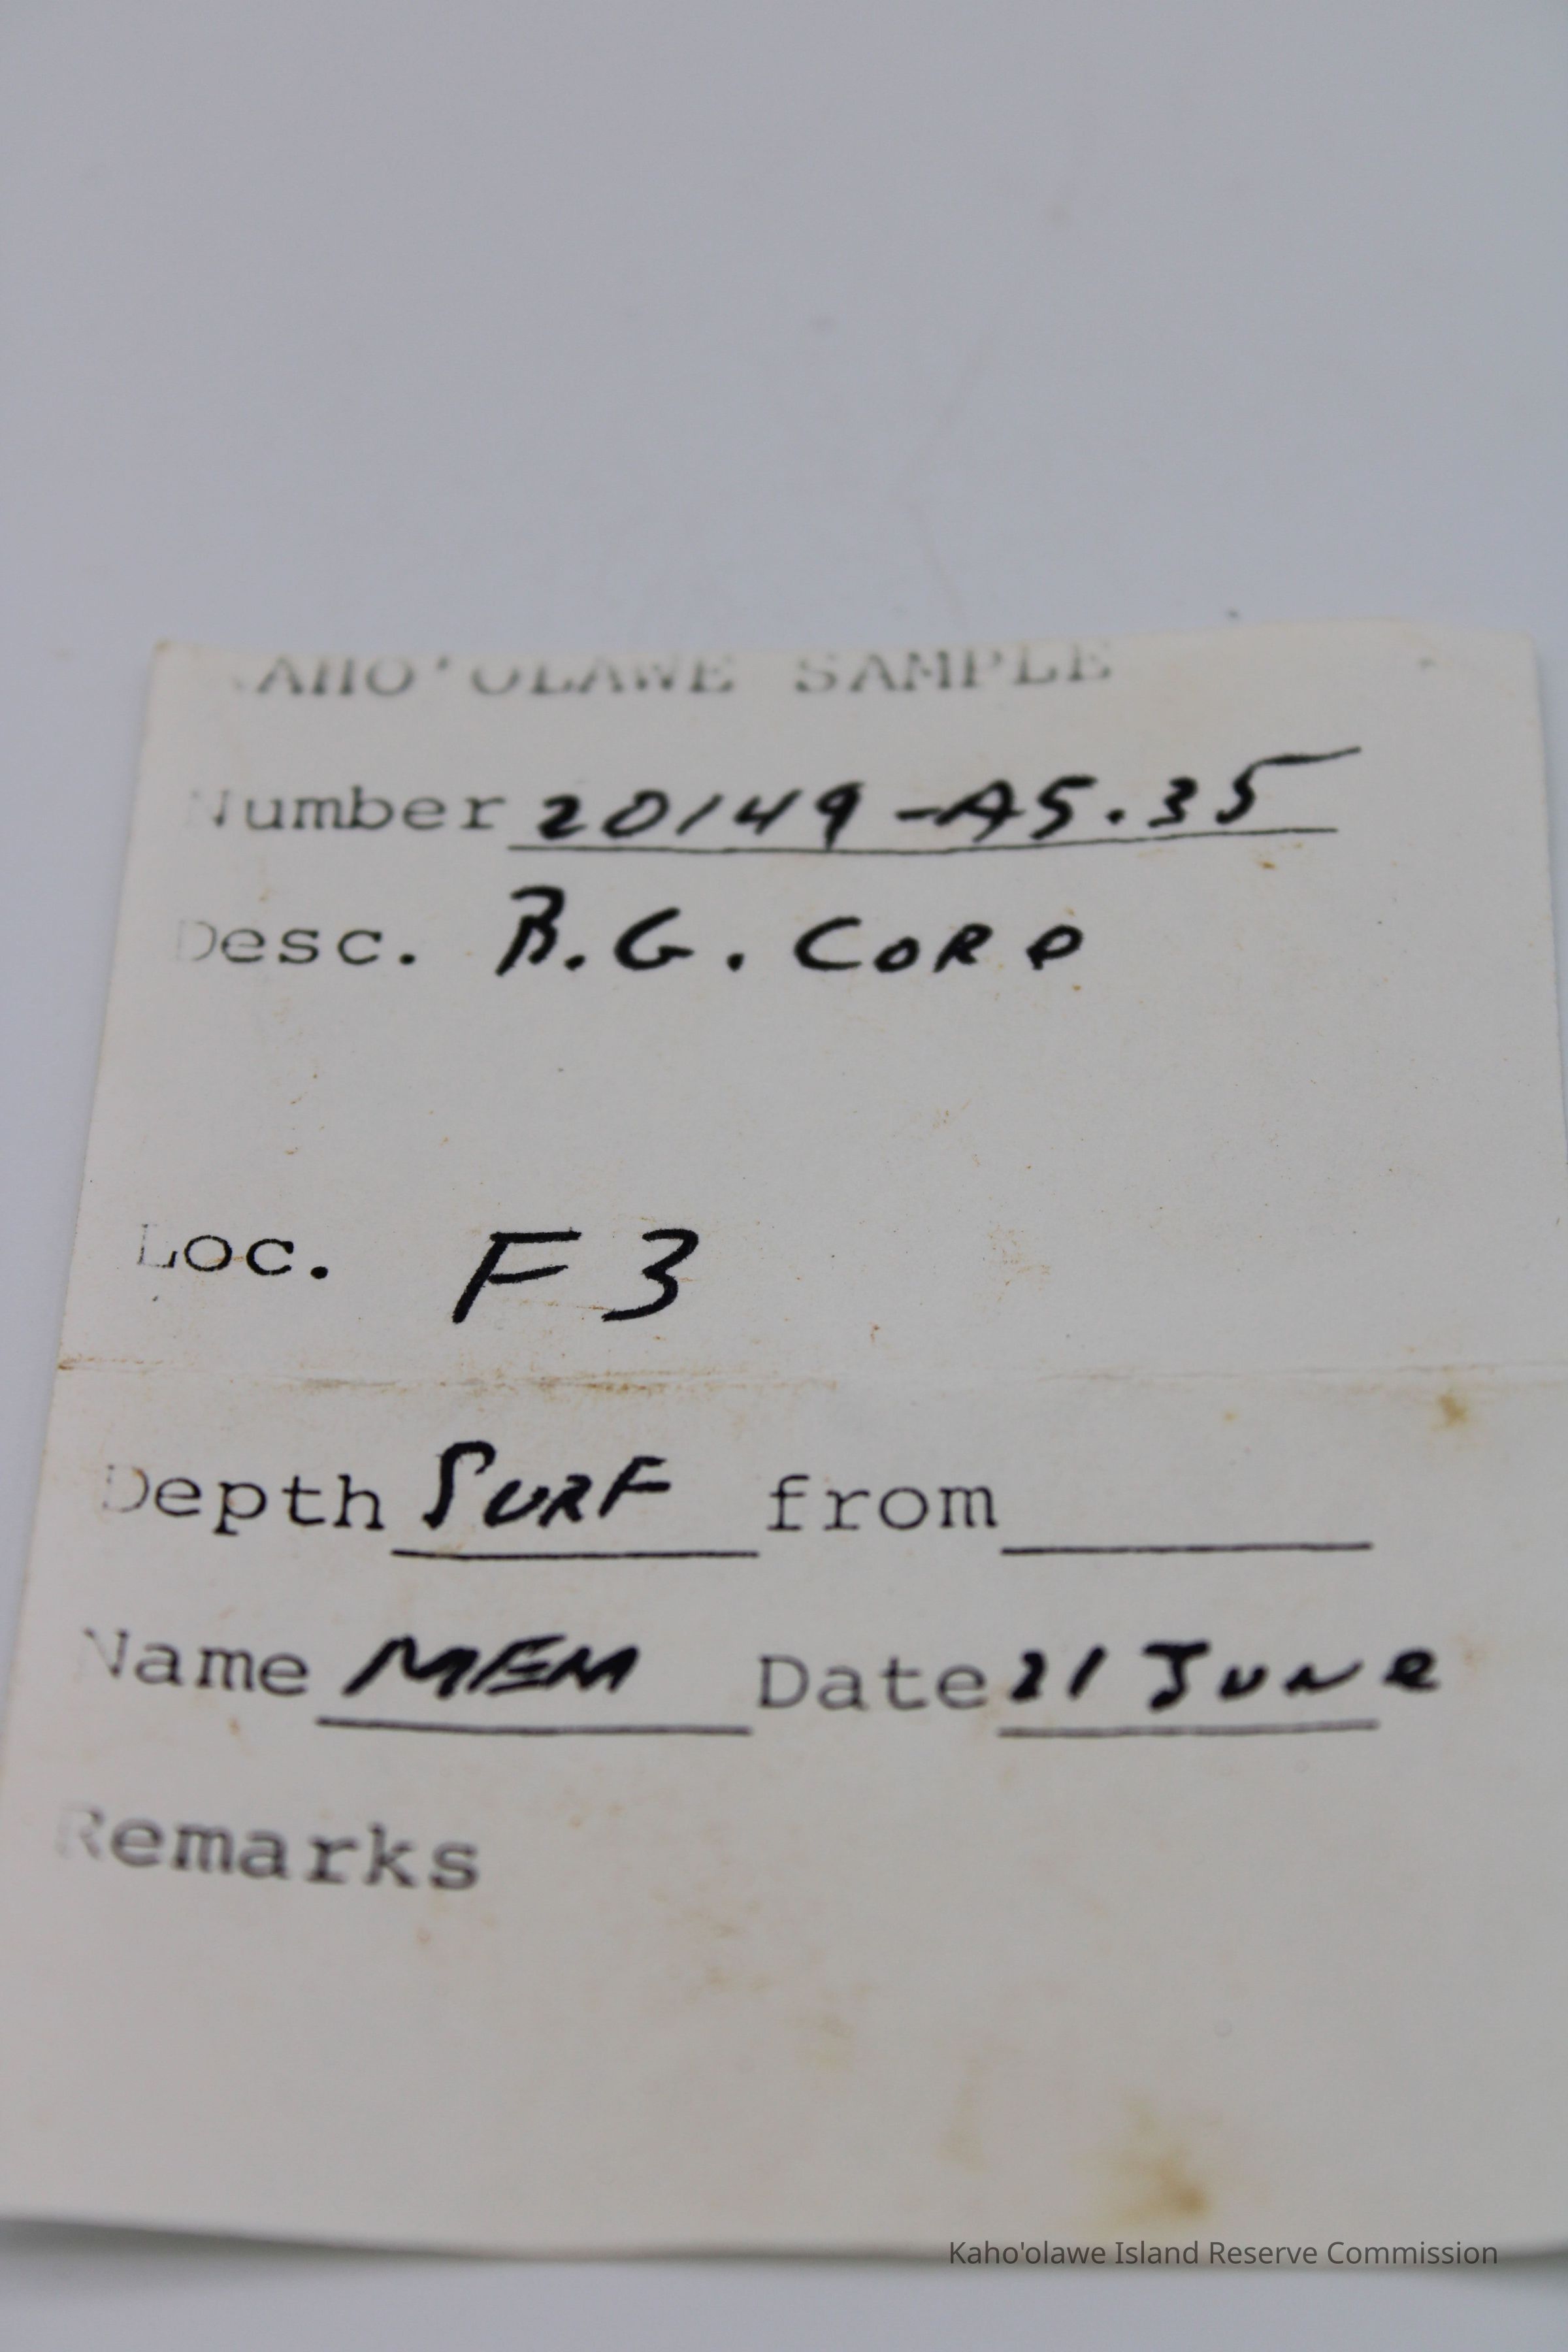 KAHO'OLAWE SAMPLE
Number 20149-A5.35
Desc. B.G. CORD
Loc. F3
Depth SURF from
Name MEM Date 21 June
Remarks
Kaho'olawe Island Reserve Commission